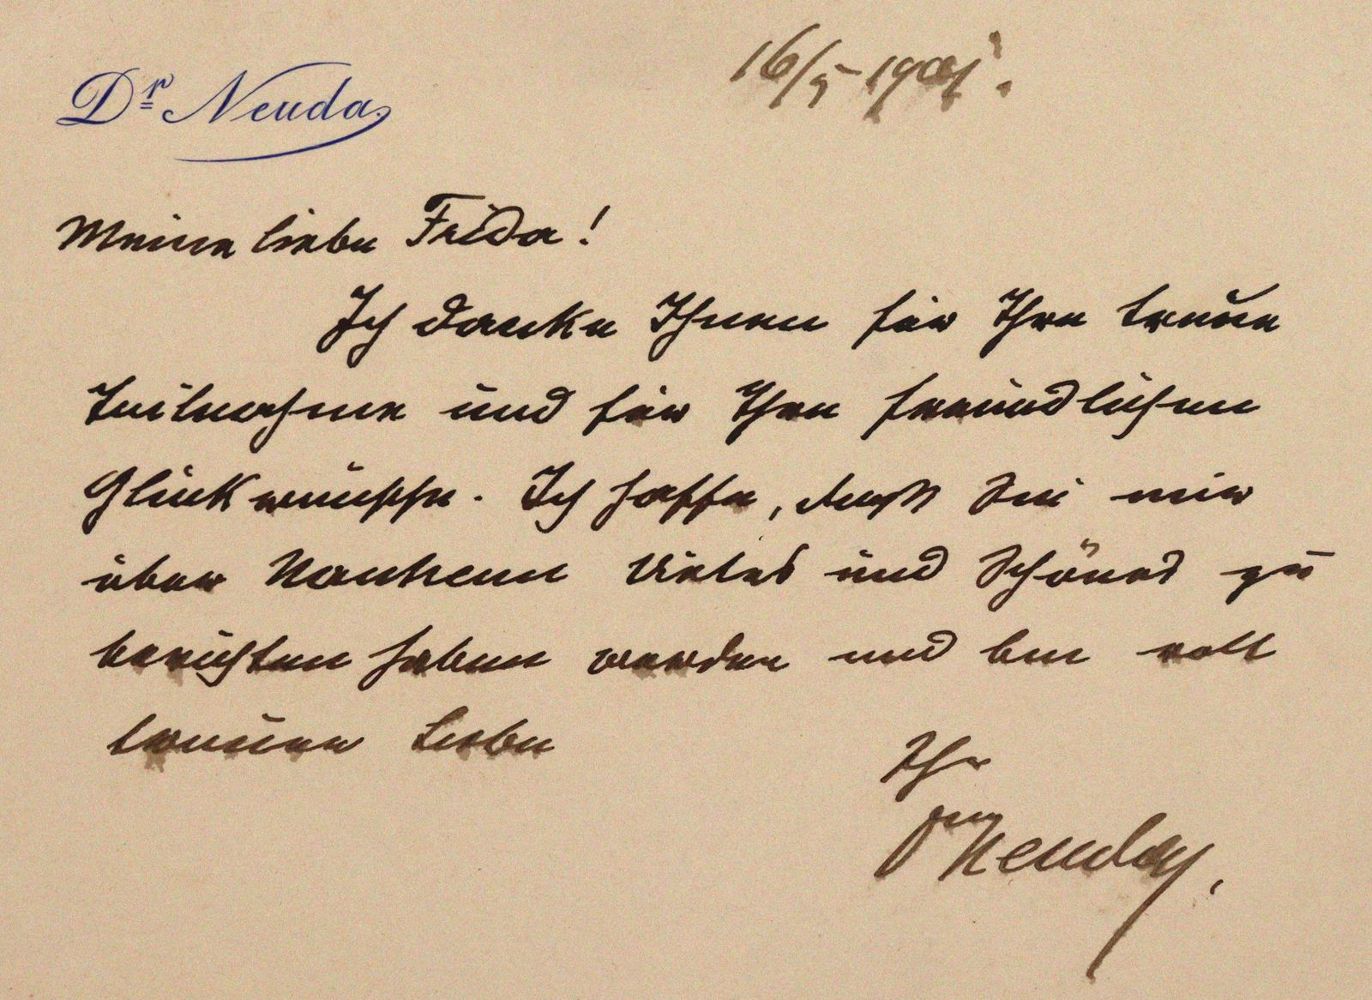 Dr Neuda.
16/5 1901.
Meine liebe Frida!
Ich danke Ihnen für Ihre treue
Teilnahme und für Ihre freundlichen
Glückwünsche. Ich hoffe, daß Sie mir
über Vieles und Schönes zu
berichten haben werden und bin voll
treuer Liebe
Ihr
Neuda